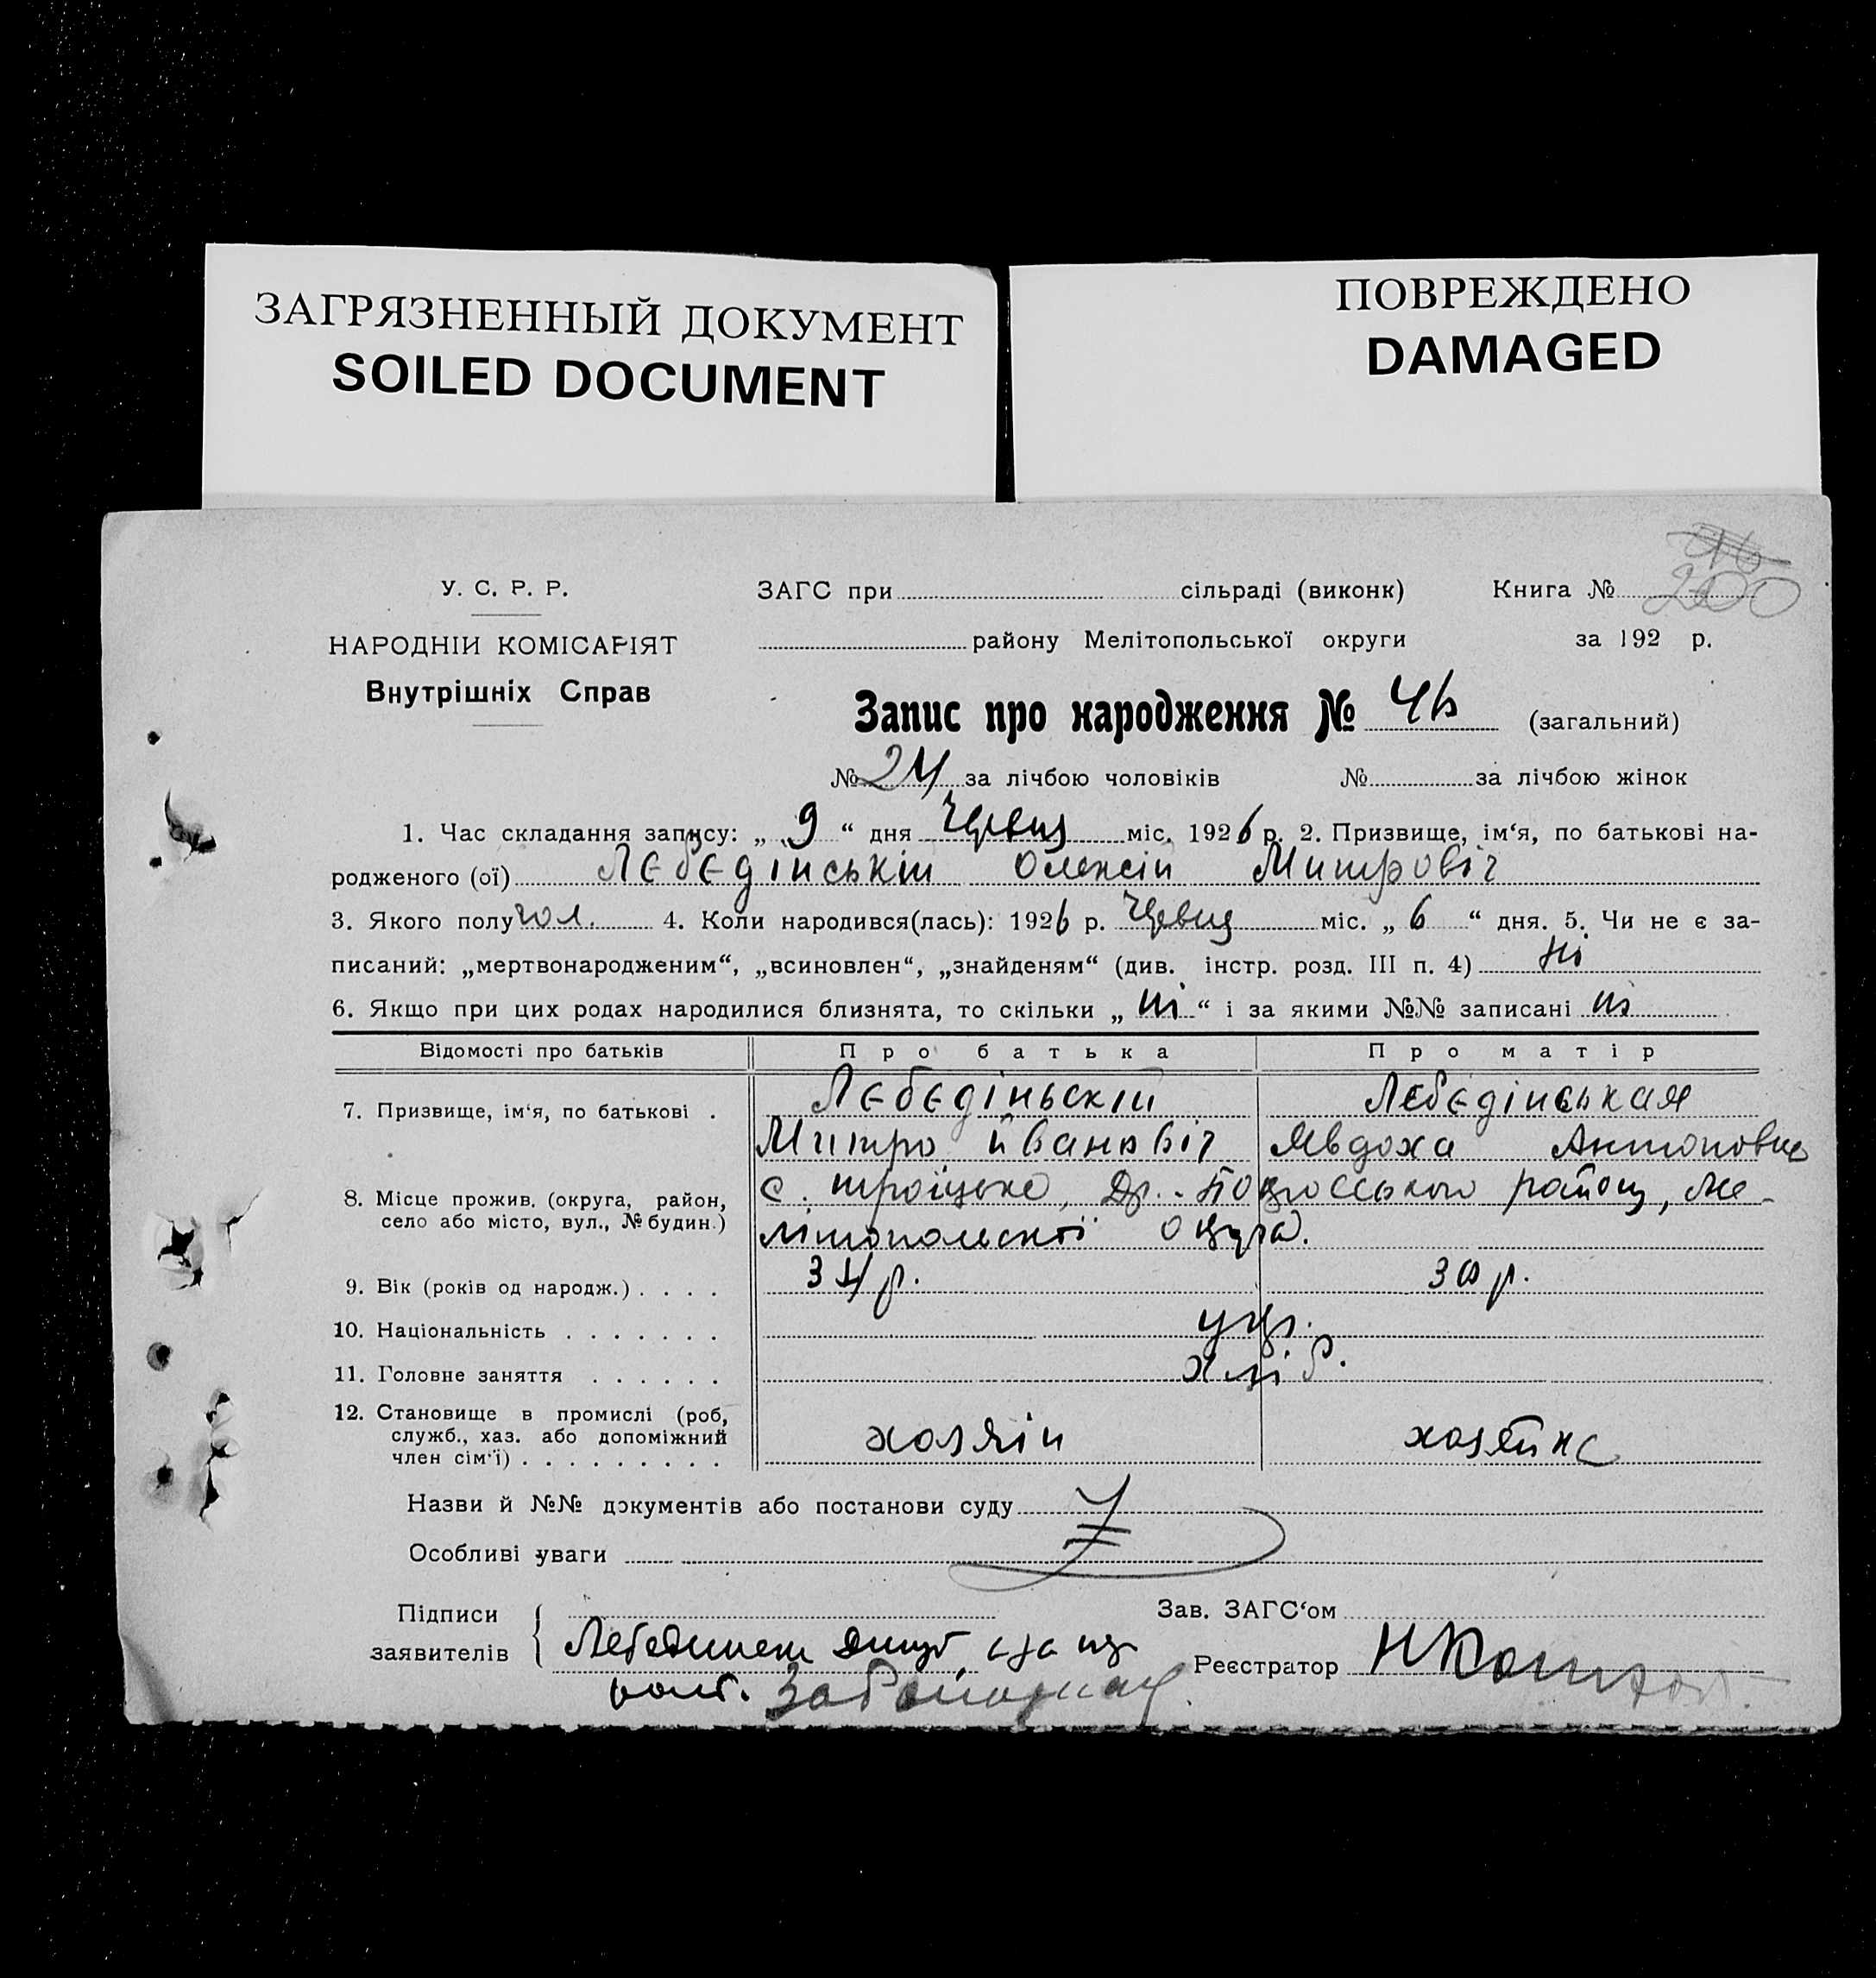 ЗАГРЯЗНЕННЫЙ ДОКУМЕНТ
SOILED DOCUMENT
ПОВРЕЖДЕНО
DAMAGED
У. С. Р. Р.
НАРОДНІЙ КОМІСАРІЯТ
Внутрішніх Справ
ЗАГС при сільраді (виконк) Книга № 200
району Мелітопольської округи за 192 р.
Запис про народження № 46 (загальний)
№ 24 за лічбою чоловіків № за лічбою жінок
1. Час складання запису: „ 9 “ дня Червця міс. 1926 р. 2. Призвище, ім‘я, по батькові на-
родженого (ої) Лєбєдінській Олексій Митровіч
3. Якого полу чол. 4. Коли народився(лась): 1926 р. Червця міс. „ 6 “ дня. 5. Чи не є за-
писаний: „мертвонародженим“, „всиновлен“, „знайденям“ (див. інстр. розд. III п. 4) ні
6. Якщо при цих родах народилися близнята, то скільки „ ні “ і за якими №№ записані ні
Відомості про батьків Про батька Про матір
7. Призвище, ім‘я, по батькові . Лєбєдіньскій Лєбєдінськая
Митро йвановіч Явдоха Антоновна
8. Місце прожив. (округа, район,
село або місто, вул., № будин.)
с. троїцьке, району, Ме-
літопольскої
9. Вік (років од народж.) . . . . 34 р. 30 р.
10. Національність . . . . . . . укр.
11. Головне заняття . . . . . . хліб.
12. Становище в промислі (роб,
служб., хаз. або допоміжний
член сім‘ї) . . . . . . . . . хозяін хозяйка
Назви й №№ документів або постанови суду
Особливі уваги
Підписи
заявителів
Зав. ЗАГС‘ом
Реєстратор